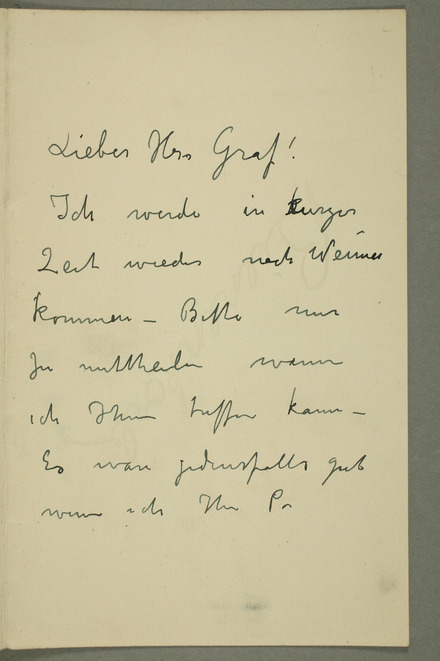 Lieber Herr Graf!
Ich werde in kurzer
Zeit wieder nach Weimar
kommen – Bitte mir
zu mittheilen wann
ich Ihnen treffen kann –
Es wäre jedenfalls gut
wenn ich Ihr